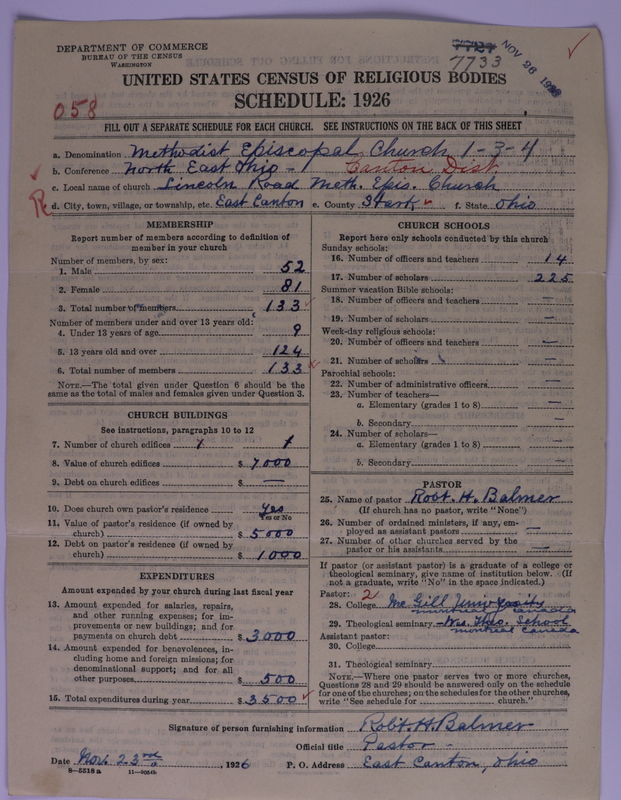 DEPARTMENT OF COMMERCE
BUREAU OF THE CENSUS
WASHINGTON
7733
NOV 26 1926
UNITED STATES CENSUS OF RELIGIOUS BODIES
SCHEDULE: 1926
058
FILL OUT A SEPARATE SCHEDULE FOR EACH CHURCH. SEE INSTRUCTIONS ON THE BACK OF THIS SHEET
a. Denomination Methodist Episcopal Church 1-3-4
b. Conference North East Ohio - 1 Canton Dist.
c. Local name of church Lincoln Road Meth. Epis. Church
d. City, town, village, or township, etc. East Canton e. County Stark f. State Ohio
MEMBERSHIP
Report number of members according to definition of
member in your church
Number of members, by sex:
1. Male 52
2. Female 81
3. Total number of members 133
Number of members under and over 13 years old:
4. Under 13 years of age 9
5. 13 years old and over 124
6. Total number of members 133
NOTE.—The total given under Question 6 should be the
same as the total of males and females given under Question 3.
CHURCH BUILDINGS
See instructions, paragraphs 10 to 12
7. Number of church edifices 1
8. Value of church edifices $ 7000
9. Debt on church edifices $ —
10. Does church own pastor's residence Yes
Yes or No
11. Value of pastor's residence (if owned by
church) $ 5000
12. Debt on pastor's residence (if owned by
church) $ 1000
EXPENDITURES
Amount expended by church during last fiscal year
13. Amount expended for salaries, repairs,
and other running expenses; for im-
provements or new buildings; and for
payments on church debt $ 3000
14. Amount expended for benevolences, in-
cluding home and foreign missions; for
denominational support; and for all
other purposes $ 500
15. Total expenditures during year $ 3500
CHURCH SCHOOLS
Report here only schools conducted by this church
Sunday schools:
16. Number of officers and teachers 14
17. Number of scholars 225
Summer vacation Bible schools:
18. Number of officers and teachers —
19. Number of scholars —
Week-day religious schools:
20. Number of officers and teachers —
21. Number of scholars —
Parochial schools:
22. Number of administrative officers —
23. Number of teachers—
a. Elementary (grades 1 to 8) —
b. Secondary —
24. Number of scholars—
a. Elementary (grades 1 to 8) —
b. Secondary —
PASTOR
25. Name of pastor Robt. H. Balmer
(If church has no pastor, write "None")
26. Number of ordained ministers, if any, em-
ployed as assistant pastors —
27. Number of other churches served by the
pastor or his assistants —
If pastor (or assistant pastor) is a graduate of a college or
theological seminary, give name of institution below. (If
not a graduate, write "No" in the space indicated.)
Pastor: 2
28. College Mc Gill University
montreal canada
29. Theological seminary Wes. Theo. School
montreal canada
Assistant pastor:
30. College
31. Theological seminary
NOTE.—Where one pastor serves two or more churches,
Questions 28 and 29 should be answered only on the schedule
for one of the churches; on the schedules for the other churches,
write "See schedule for church."
Signature of person furnishing information Robt. H. Balmer
Official title Pastor
Date Nov. 23rd, 1926 P. O. Address East Canton, Ohio
8—5518a 11—9054b